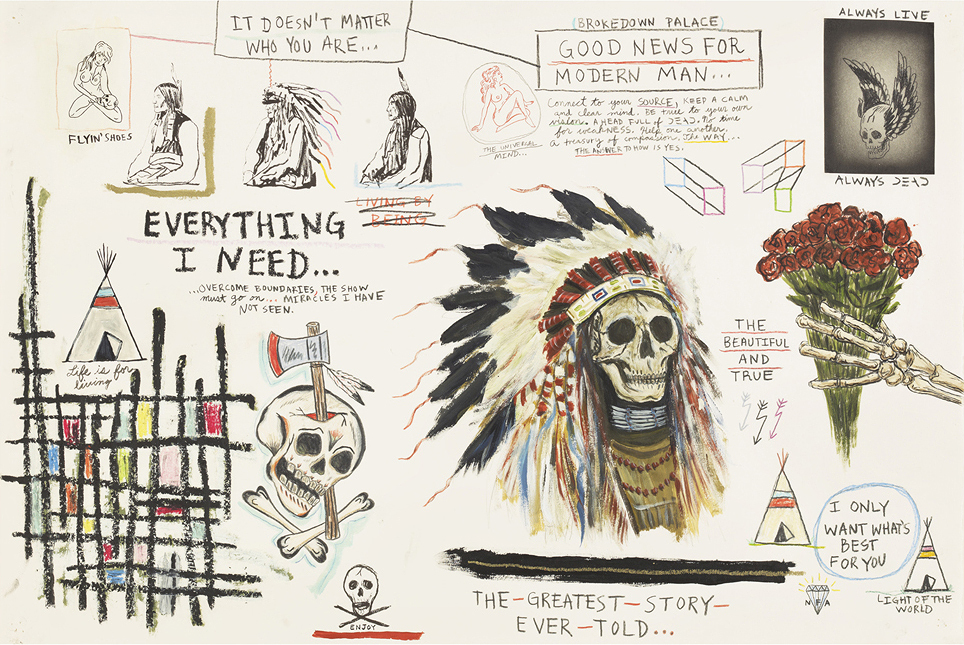 IT DOESN'T MATTER
WHO YOU ARE...
(BROKEDOWN PALACE)
GOOD NEWS FOR
MODERN MAN...
ALWAYS LIVE
FLYIN' SHOES
Connect to your SOURCE, KEEP A CALM
and clear mind. BE true to your own
vision. A HEAD FULL OF DEAD. No time
for weakNESS. Help one another.
A treasury of compassion. The WAY...
THE ANSWER TO HOW IS YES.
THE UNIVERSAL
MIND...
ALWAYS DEAD
LIVING BY
BEING
EVERYTHING
I NEED...
...OVERCOME BOUNDARIES, THE SHOW
must go on... MIRACLES I HAVE
NOT SEEN.
Life is for
living
THE
BEAUTIFUL
AND
TRUE
I ONLY
WANT WHAT'S
BEST
FOR YOU
ENJOY
N F A
LIGHT OF THE
WORLD
THE-GREATEST-STORY-
EVER-TOLD...